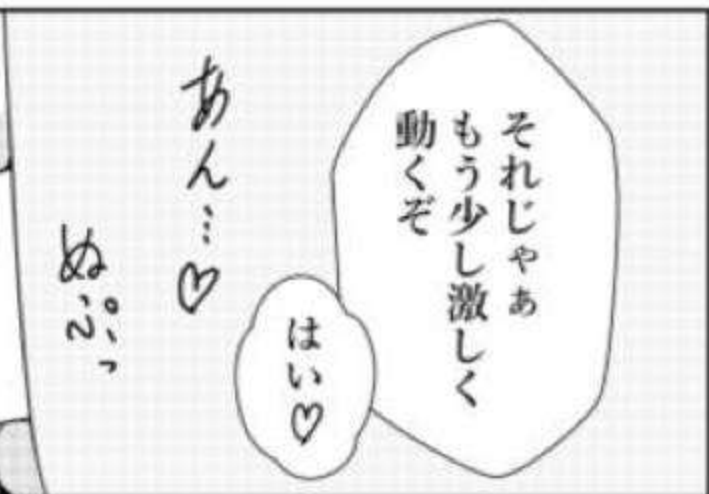 それじゃぁ
もう少し激しく
動くぞ
はい♡
あん…♡
ぬぷっ